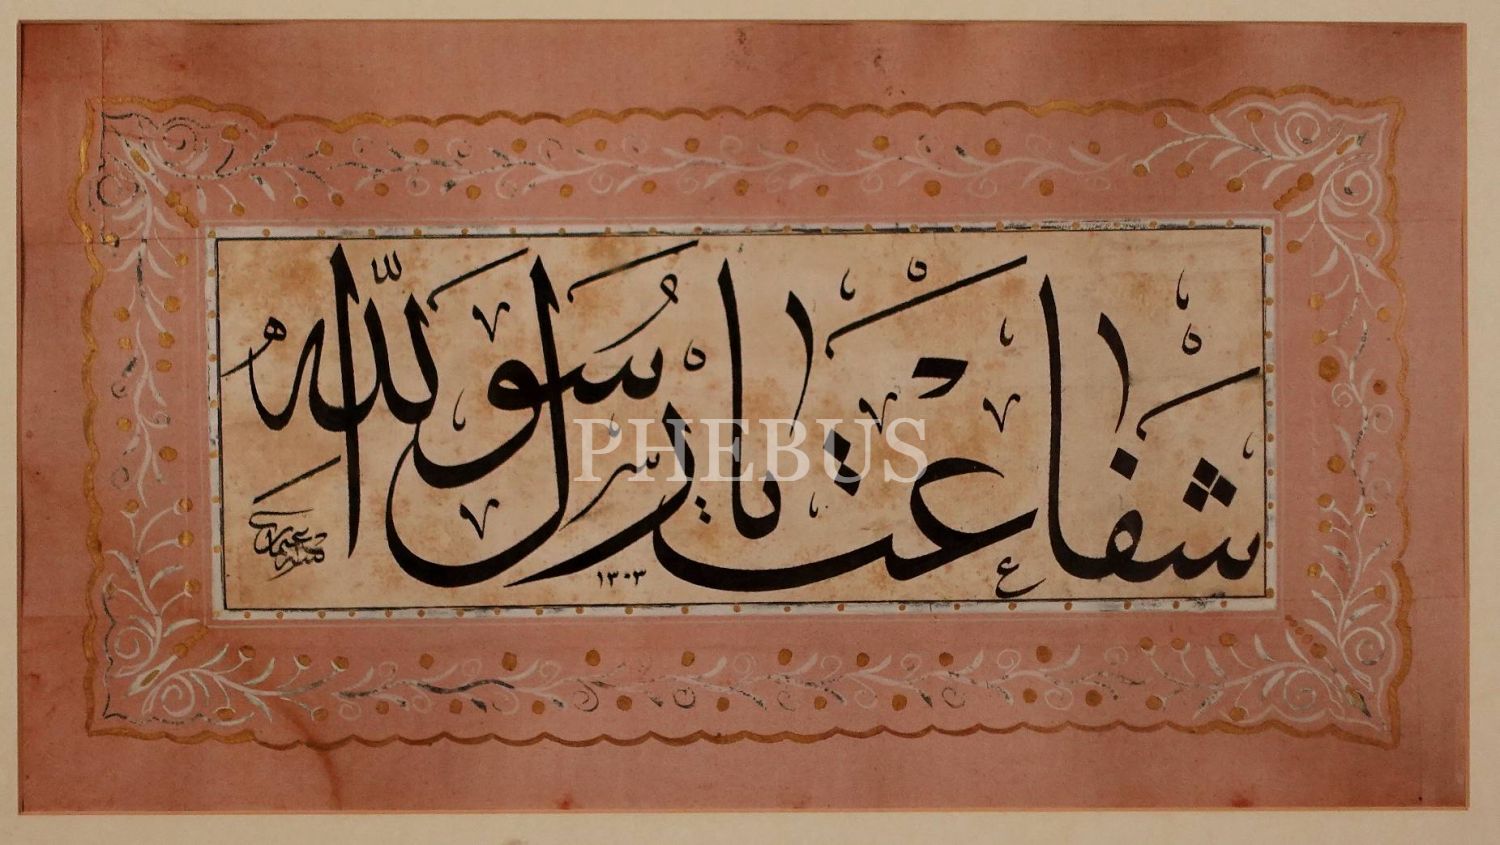 شفاعت يا رسول الله
١٣٠٣
PHEBUS